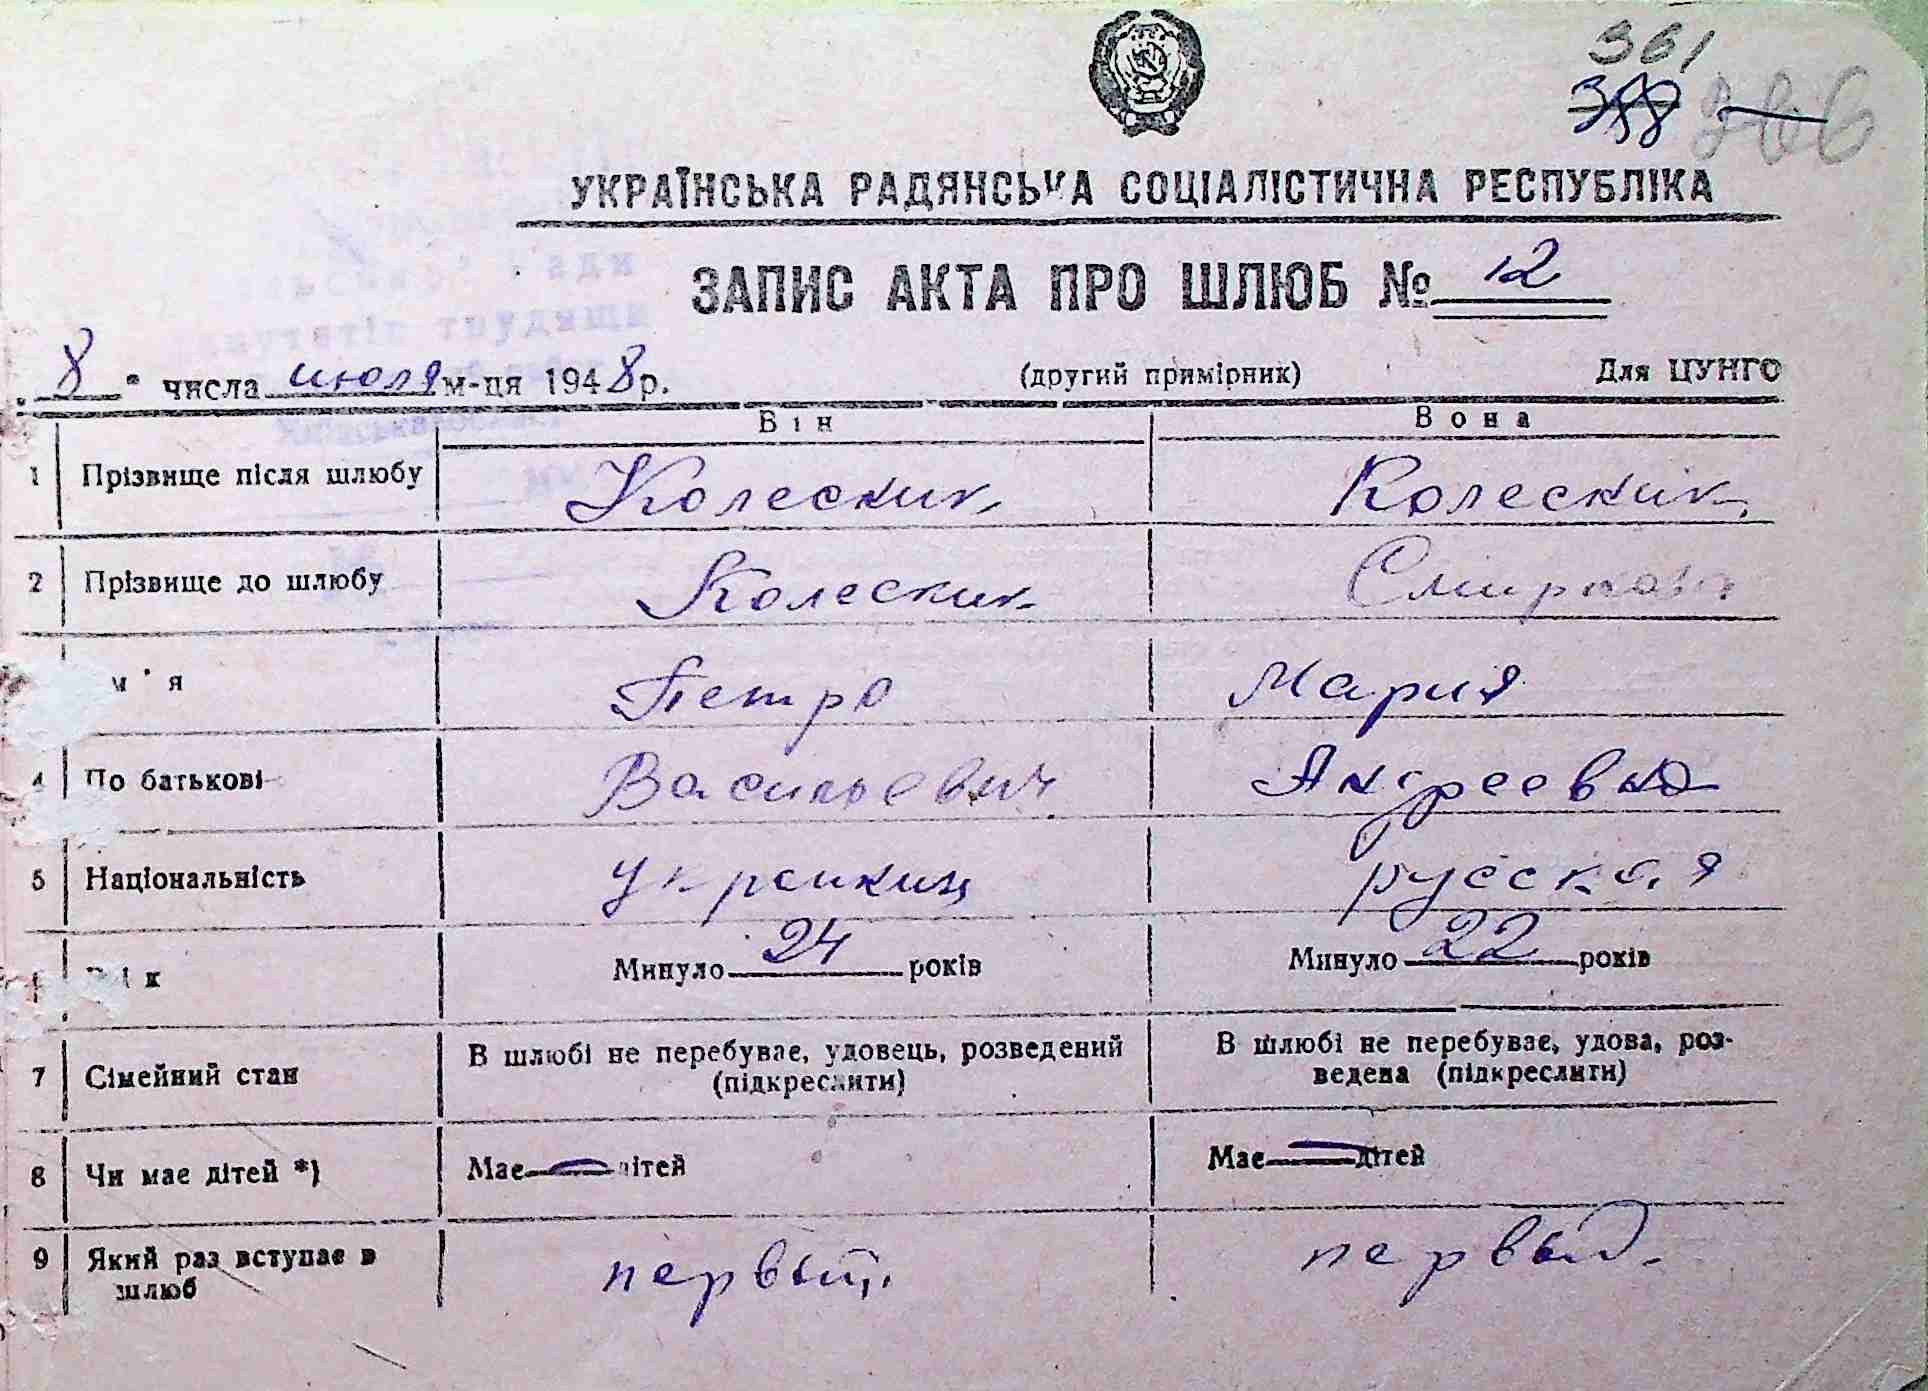 361
388 366
УКРАЇНСЬКА РАДЯНСЬКА СОЦІАЛІСТИЧНА РЕСПУБЛІКА
ЗАПИС АКТА ПРО ШЛЮБ № 12
8 числа июля м-ця 1948 р. (другий примірник) Для ЦУНГО
Він Вона
1 Прізвище після шлюбу Колесник Колесник
2 Прізвище до шлюбу Колесник Смирнова
м'я Петро Мария
4 По батькові Васильевич Андреевна
5 Національність украинец русская
Минуло 24 років Минуло 22 років
7 Сімейний стан В шлюбі не перебуває, удовець, розведений (підкреслити) В шлюбі не перебуває, удова, роз-
ведена (підкреслити)
8 Чи має дітей *) Має — дітей Має — дітей
9 Який раз вступає в шлюб первый. первый.